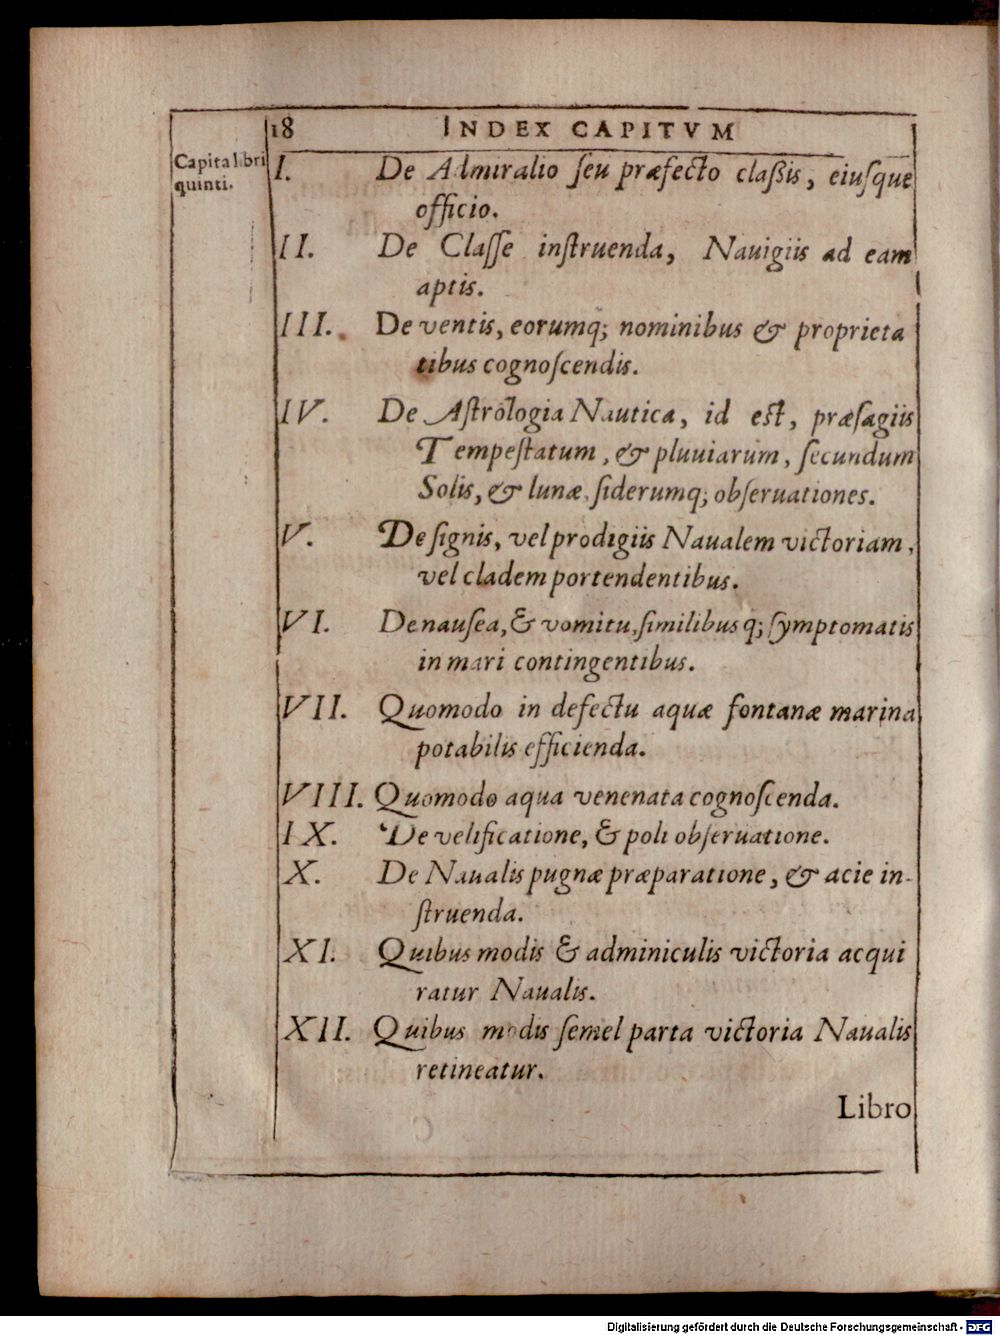 18 INDEX CAPITVM
Capita libri
quinti.
I. De Admiralio ſeu præfecto claßis, eiuſque
officio.
II. De Claſſe inſtruenda, Nauigiis ad eam
aptis.
III. De ventis, eorumq; nominibus & proprieta
tibus cognoſcendis.
IV. De Aſtrologia Nautica, id eſt, præſagiis
Tempeſtatum, & pluuiarum, ſecundum
Solis, & lunæ, ſiderumq; obſeruationes.
V. De ſignis, vel prodigiis Naualem victoriam,
vel cladem portendentibus.
VI. De nauſea, & vomitu, ſimilibus q; ſymptomatis
in mari contingentibus.
VII. Quomodo in defectu aquæ fontanæ marina
potabilis efficienda.
VIII. Quomodo aqua venenata cognoſcenda.
IX. De velificatione, & poli obſeruatione.
X. De Naualis pugnæ præparatione, & acie in-
ſtruenda.
XI. Quibus modis & adminiculis victoria acqui
ratur Naualis.
XII. Quibus modis ſemel parta victoria Naualis
retineatur.
Libro
Digitalisierung gefördert durch die Deutsche Forschungsgemeinschaft - DFG